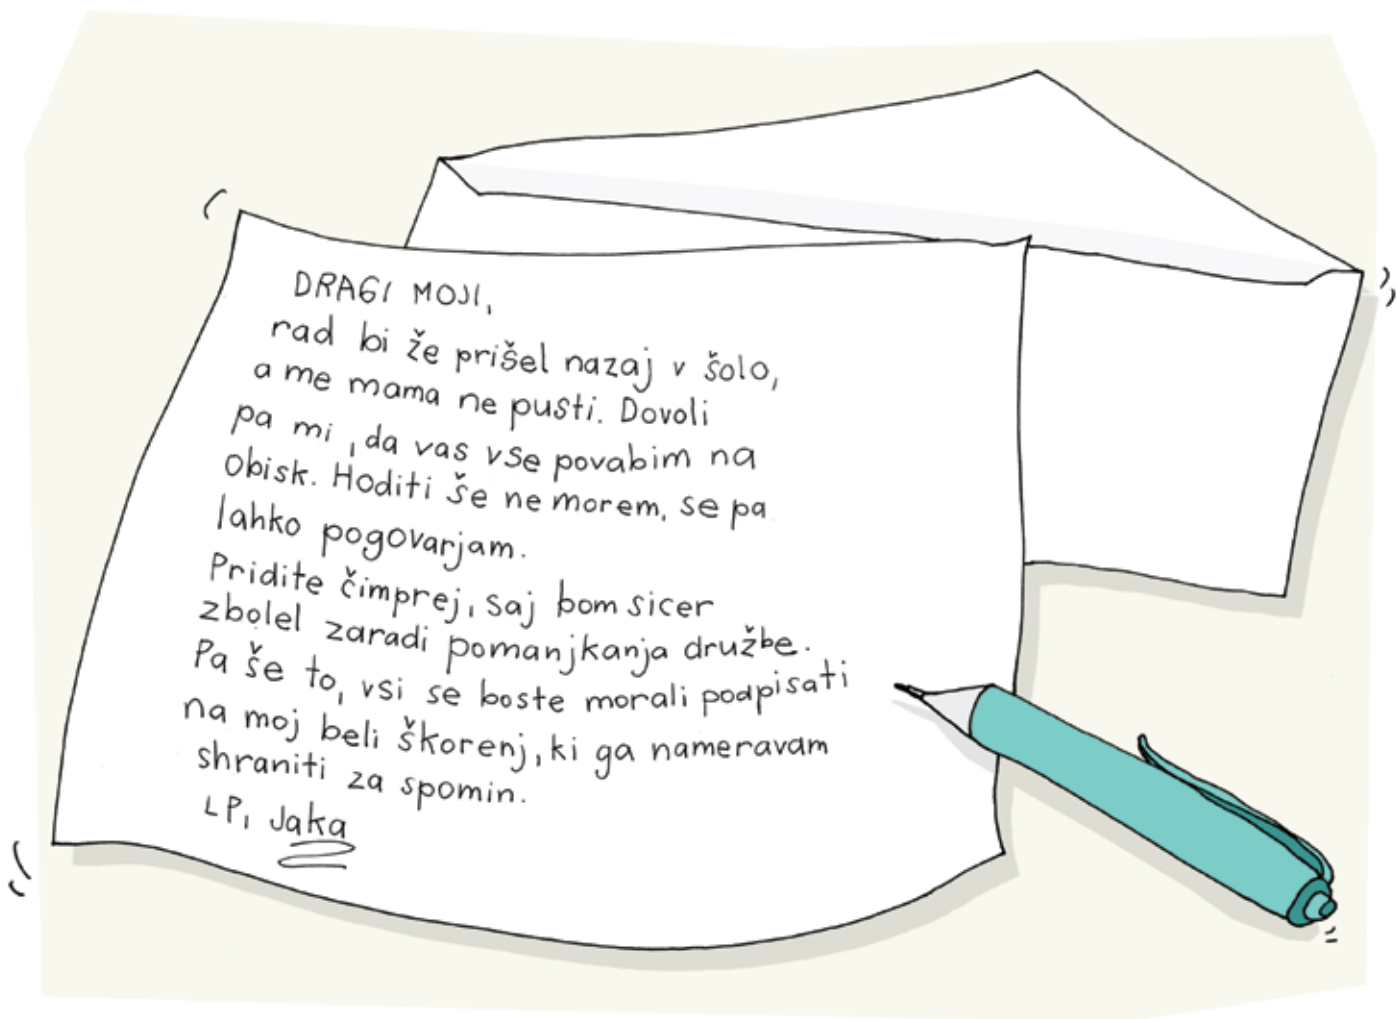 DRAGI MOJI,
rad bi že prišel nazaj v šolo,
a me mama ne pusti. Dovoli
pa mi, da vas vse povabim na
obisk. Hoditi še ne morem, se pa
lahko pogovarjam.
Pridite čimprej, saj bom sicer
zbolel zaradi pomanjkanja družbe.
Pa še to, vsi se boste morali podpisati
na moj beli škorenj, ki ga nameravam
shraniti za spomin.
LP, Jaka